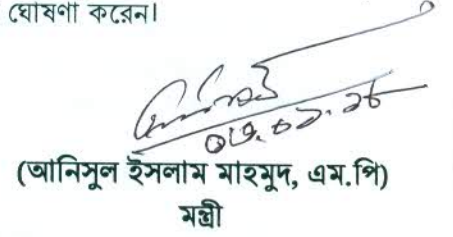 ঘোষণা করেন।
(আনিসুল ইসলাম মাহমুদ, এম.পি)
মন্ত্রী